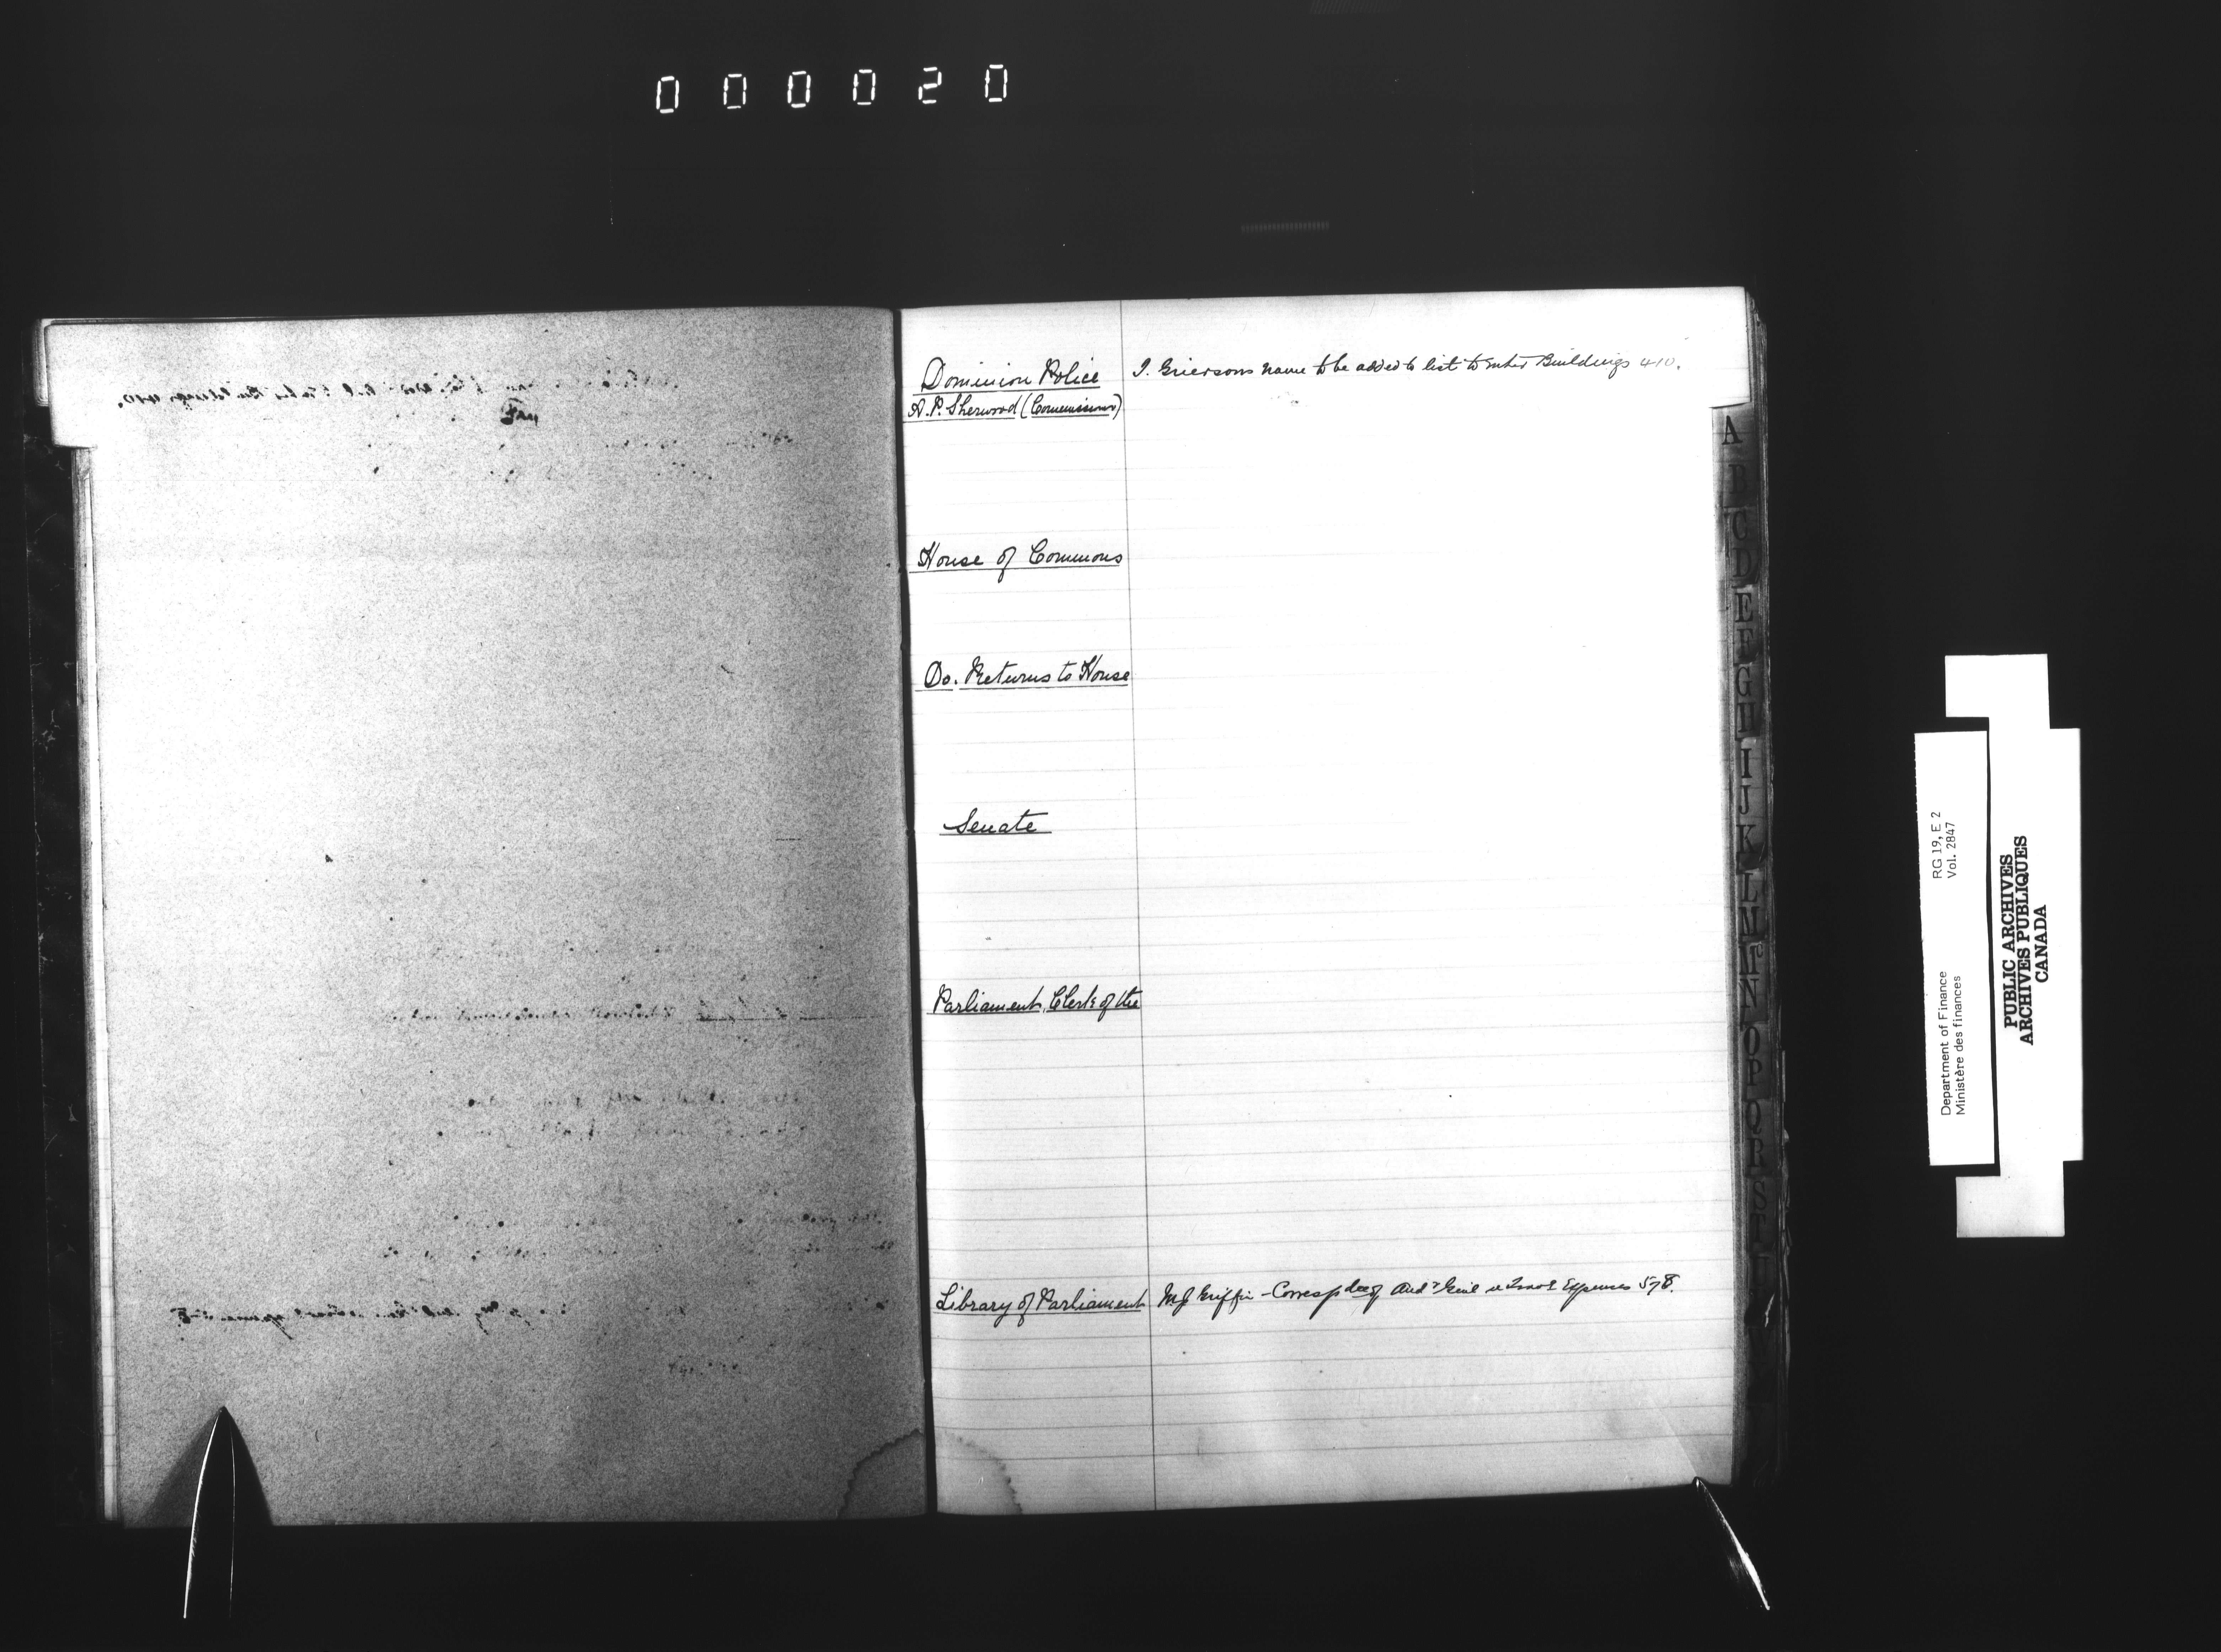 000020
Dominion Police
A. P. Sherwood (Commissioner)
J. Griersons name to be added to list to enter Buildings 410.
House of Commons
Do. Returns to House
Senate
Parliament, Clerk of the
Library of Parliament
M J Griffin - Corresp Audr Genl Expenses 578.
A
B
C
D
E
F
G
H
I
J
K
L
M
N
O
P
Q
R
S
T
RG 19, E 2
Vol. 2847
Department of Finance
Ministère des finances
PUBLIC ARCHIVES
ARCHIVES PUBLIQUES
CANADA